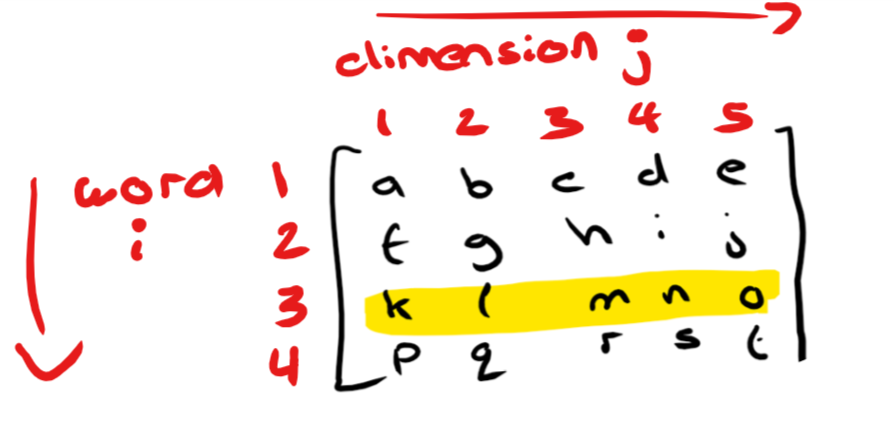 dimension j
1 2 3 4 5
word 1 a b c d e
i 2 f g h i j
3 k l m n o
4 p q r s t